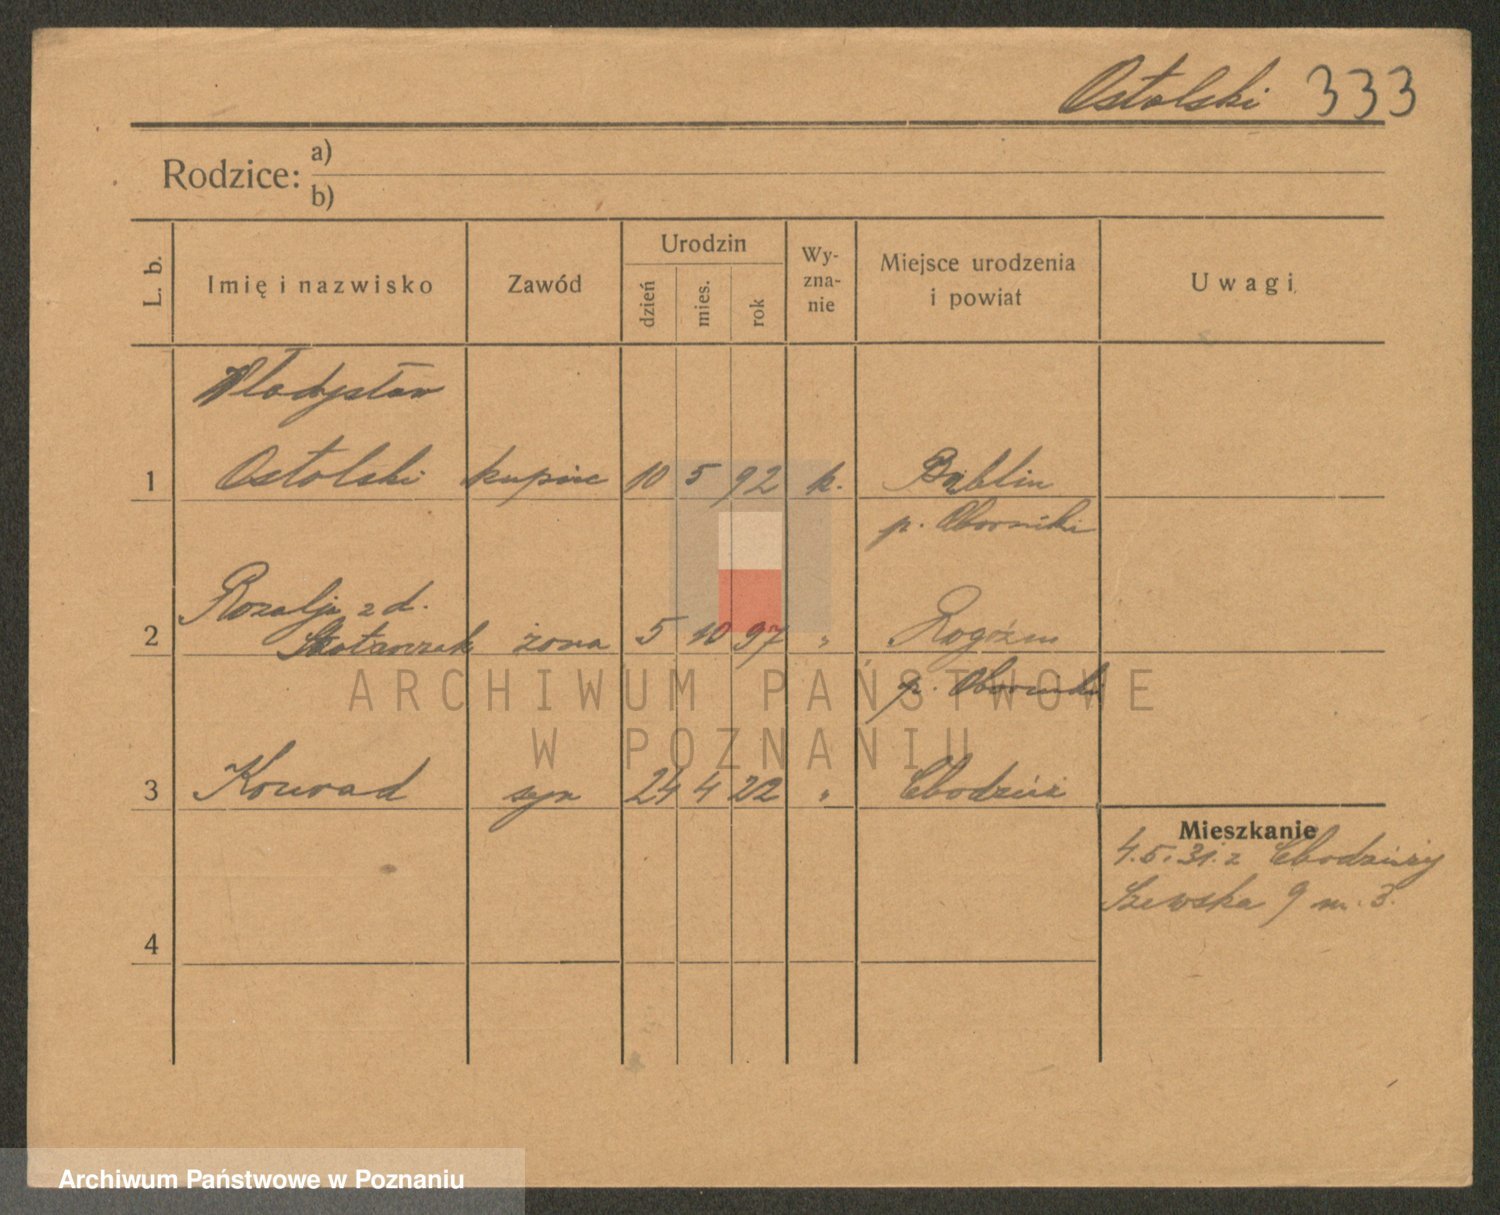 Ostolski 333
Rodzice: a)
b)
L. b. Imię i nazwisko Zawód Urodzin dzień mies. rok Wy-zna-nie Miejsce urodzenia i powiat Uwagi
Władysław
1 Ostolski kupiec 10 5 92 k. Bąblin
p. Oborniki
Rozalja z d.
2 żona 5 10 97 " Rogoźno
p. Oborniki
3 Konrad syn 24 4 22 " Chodzież
Mieszkanie
4.5.31. z Chodzieży
Szewska 9 m. 3.
4
ARCHIWUM PAŃSTWOWE
W POZNANIU
Archiwum Państwowe w Poznaniu